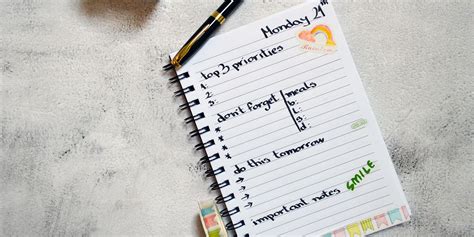 Monday 21th
top 3 priorities
1:
2:
3:
don't forget
meals
*
*
*
b:
l:
s:
d:
do this tomorrow
→
→
→
important notes
SMILE